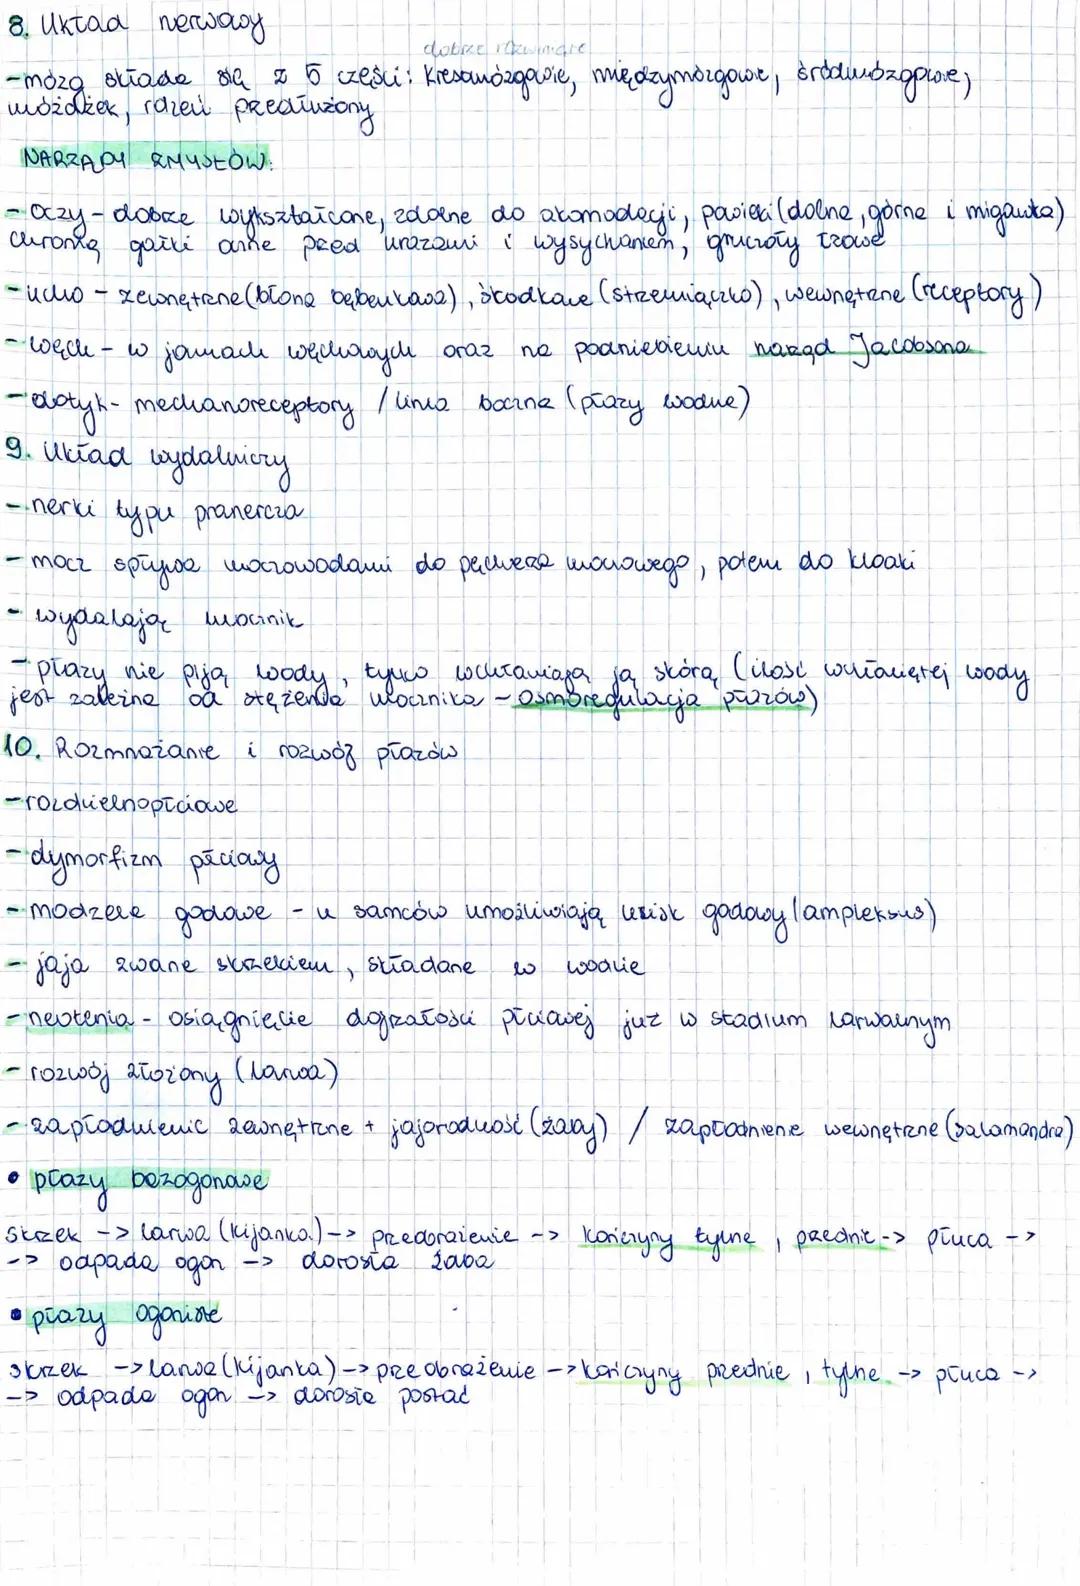 8. Układ nerwowy
dobrze rozwinięte
- mózg składa się z 5 części: kresomózgowie, międzymózgowie, śródmózgowie,
móżdżek, rdzeń przedłużony
NARZĄDY ZMYSŁÓW:
- oczy - dobrze wykształcone, zdolne do akomodacji, powieki (dolna, górna i migawka)
chronią gałki oczne przed urazami i wysychaniem, gruczoły łzowe
- ucho - zewnętrzne (błona bębenkowa), środkowe (strzemiączko), wewnętrzne (receptory)
- węch - w jamach węchowych oraz na podniebieniu narząd Jacobsona
- dotyk - mechanoreceptory / linia boczna (płazy wodne)
9. Układ wydalniczy
- nerki typu pranercza
- mocz spływa moczowodami do pęcherza moczowego, potem do kloaki
- wydalają mocznik
- płazy nie piją wody, tylko wchłaniają ją skórą (ilość wchłaniętej wody
jest zależna od stężenia mocznika - osmoregulacja płazów)
10. Rozmnażanie i rozwój płazów
- rozdzielnopłciowe
- dymorfizm płciowy
- modzele godowe - u samców umożliwiają uścisk godowy (ampleksus)
- jaja zwane skrzekiem, składane w wodzie
- neotenia - osiągnięcie dojrzałości płciowej już w stadium larwalnym
- rozwój złożony (larwa)
- zapłodnienie zewnętrzne + jajorodność (żaby) / zapłodnienie wewnętrzne (salamandra)
• płazy bezogonowe
skrzek -> larwa (kijanka) -> przeobrażenie -> kończyny tylne, przednie -> płuca ->
-> odpada ogon -> dorosła żaba
• płazy ogoniaste
skrzek -> larwa (kijanka) -> przeobrażenie -> kończyny przednie, tylne -> płuca ->
-> odpada ogon -> dorosła postać